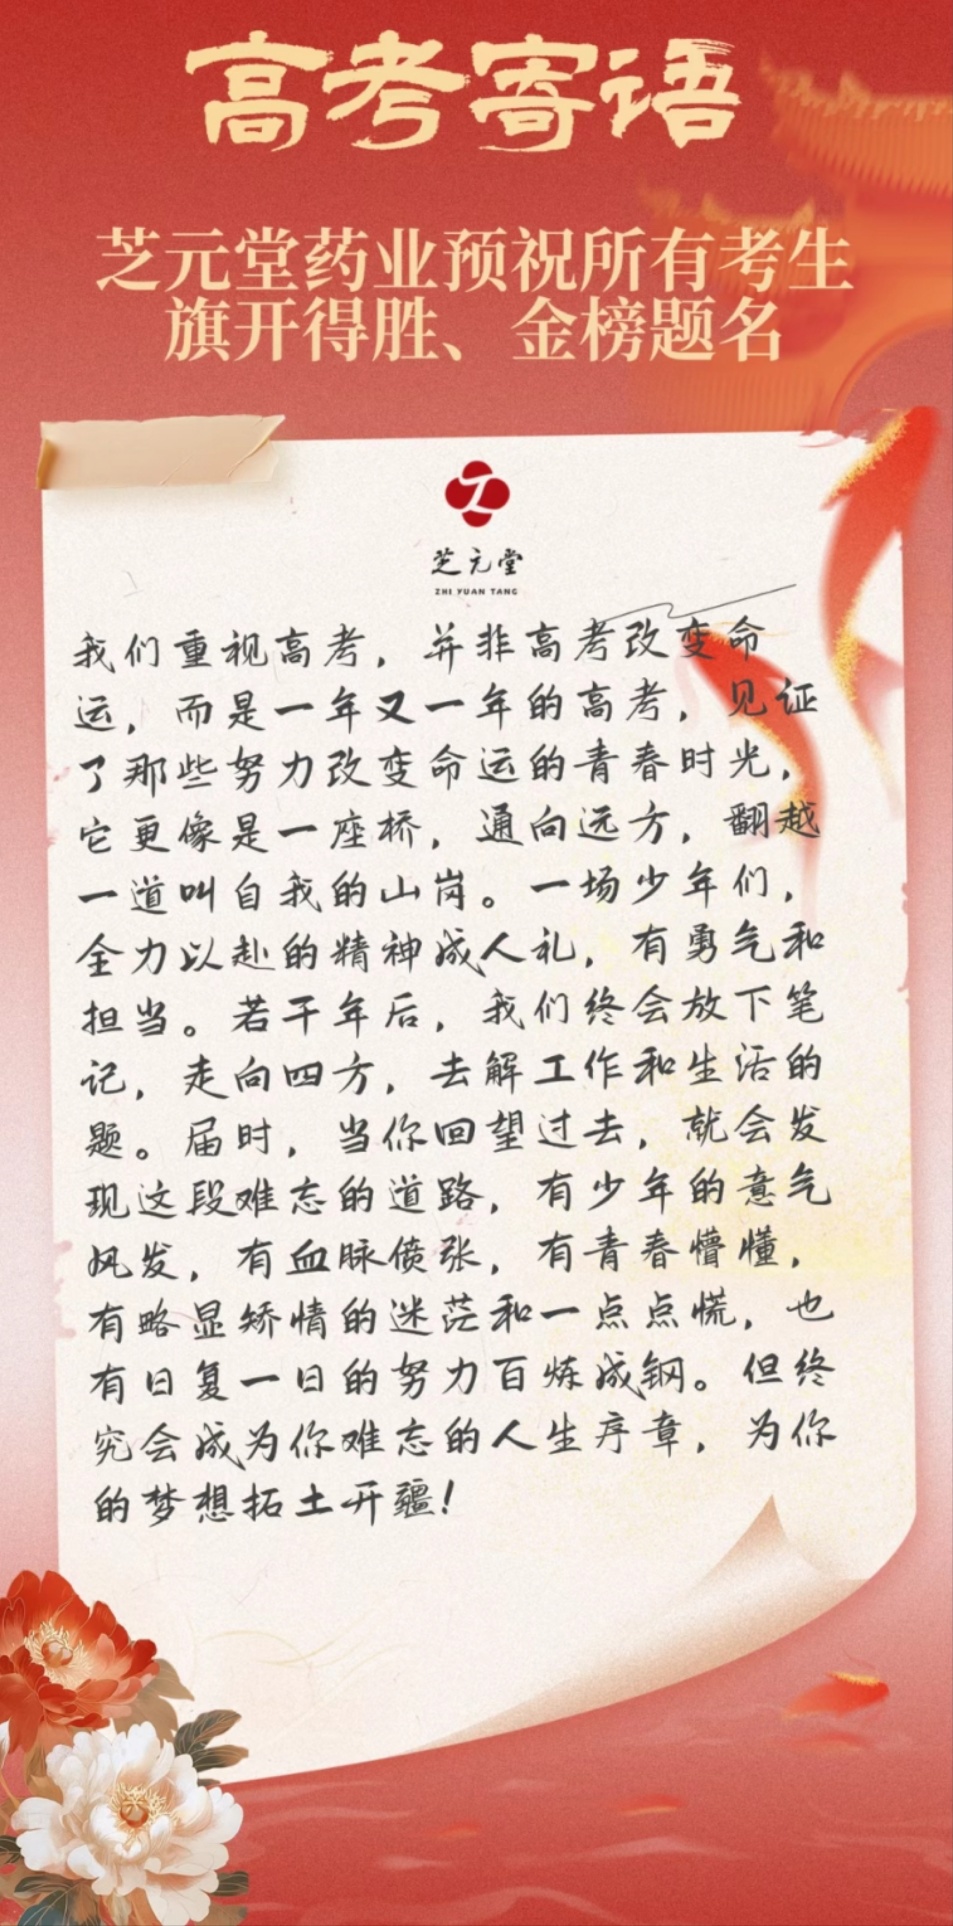 高考寄语
芝元堂药业预祝所有考生
旗开得胜、金榜题名
芝元堂
ZHI YUAN TANG
我们重视高考，并非高考改变命
运，而是一年又一年的高考，见证
了那些努力改变命运的青春时光，
它更像是一座桥，通向远方，翻越
一道叫自我的山岗。一场少年们，
全力以赴的精神成人礼，有勇气和
担当。若干年后，我们终会放下笔
记，走向四方，去解工作和生活的
题。届时，当你回望过去，就会发
现这段难忘的道路，有少年的意气
风发，有血脉偾张，有青春懵懂，
有略显矫情的迷茫和一点点慌，也
有日复一日的努力百炼成钢。但终
究会成为你难忘的人生序章，为你
的梦想拓土开疆！